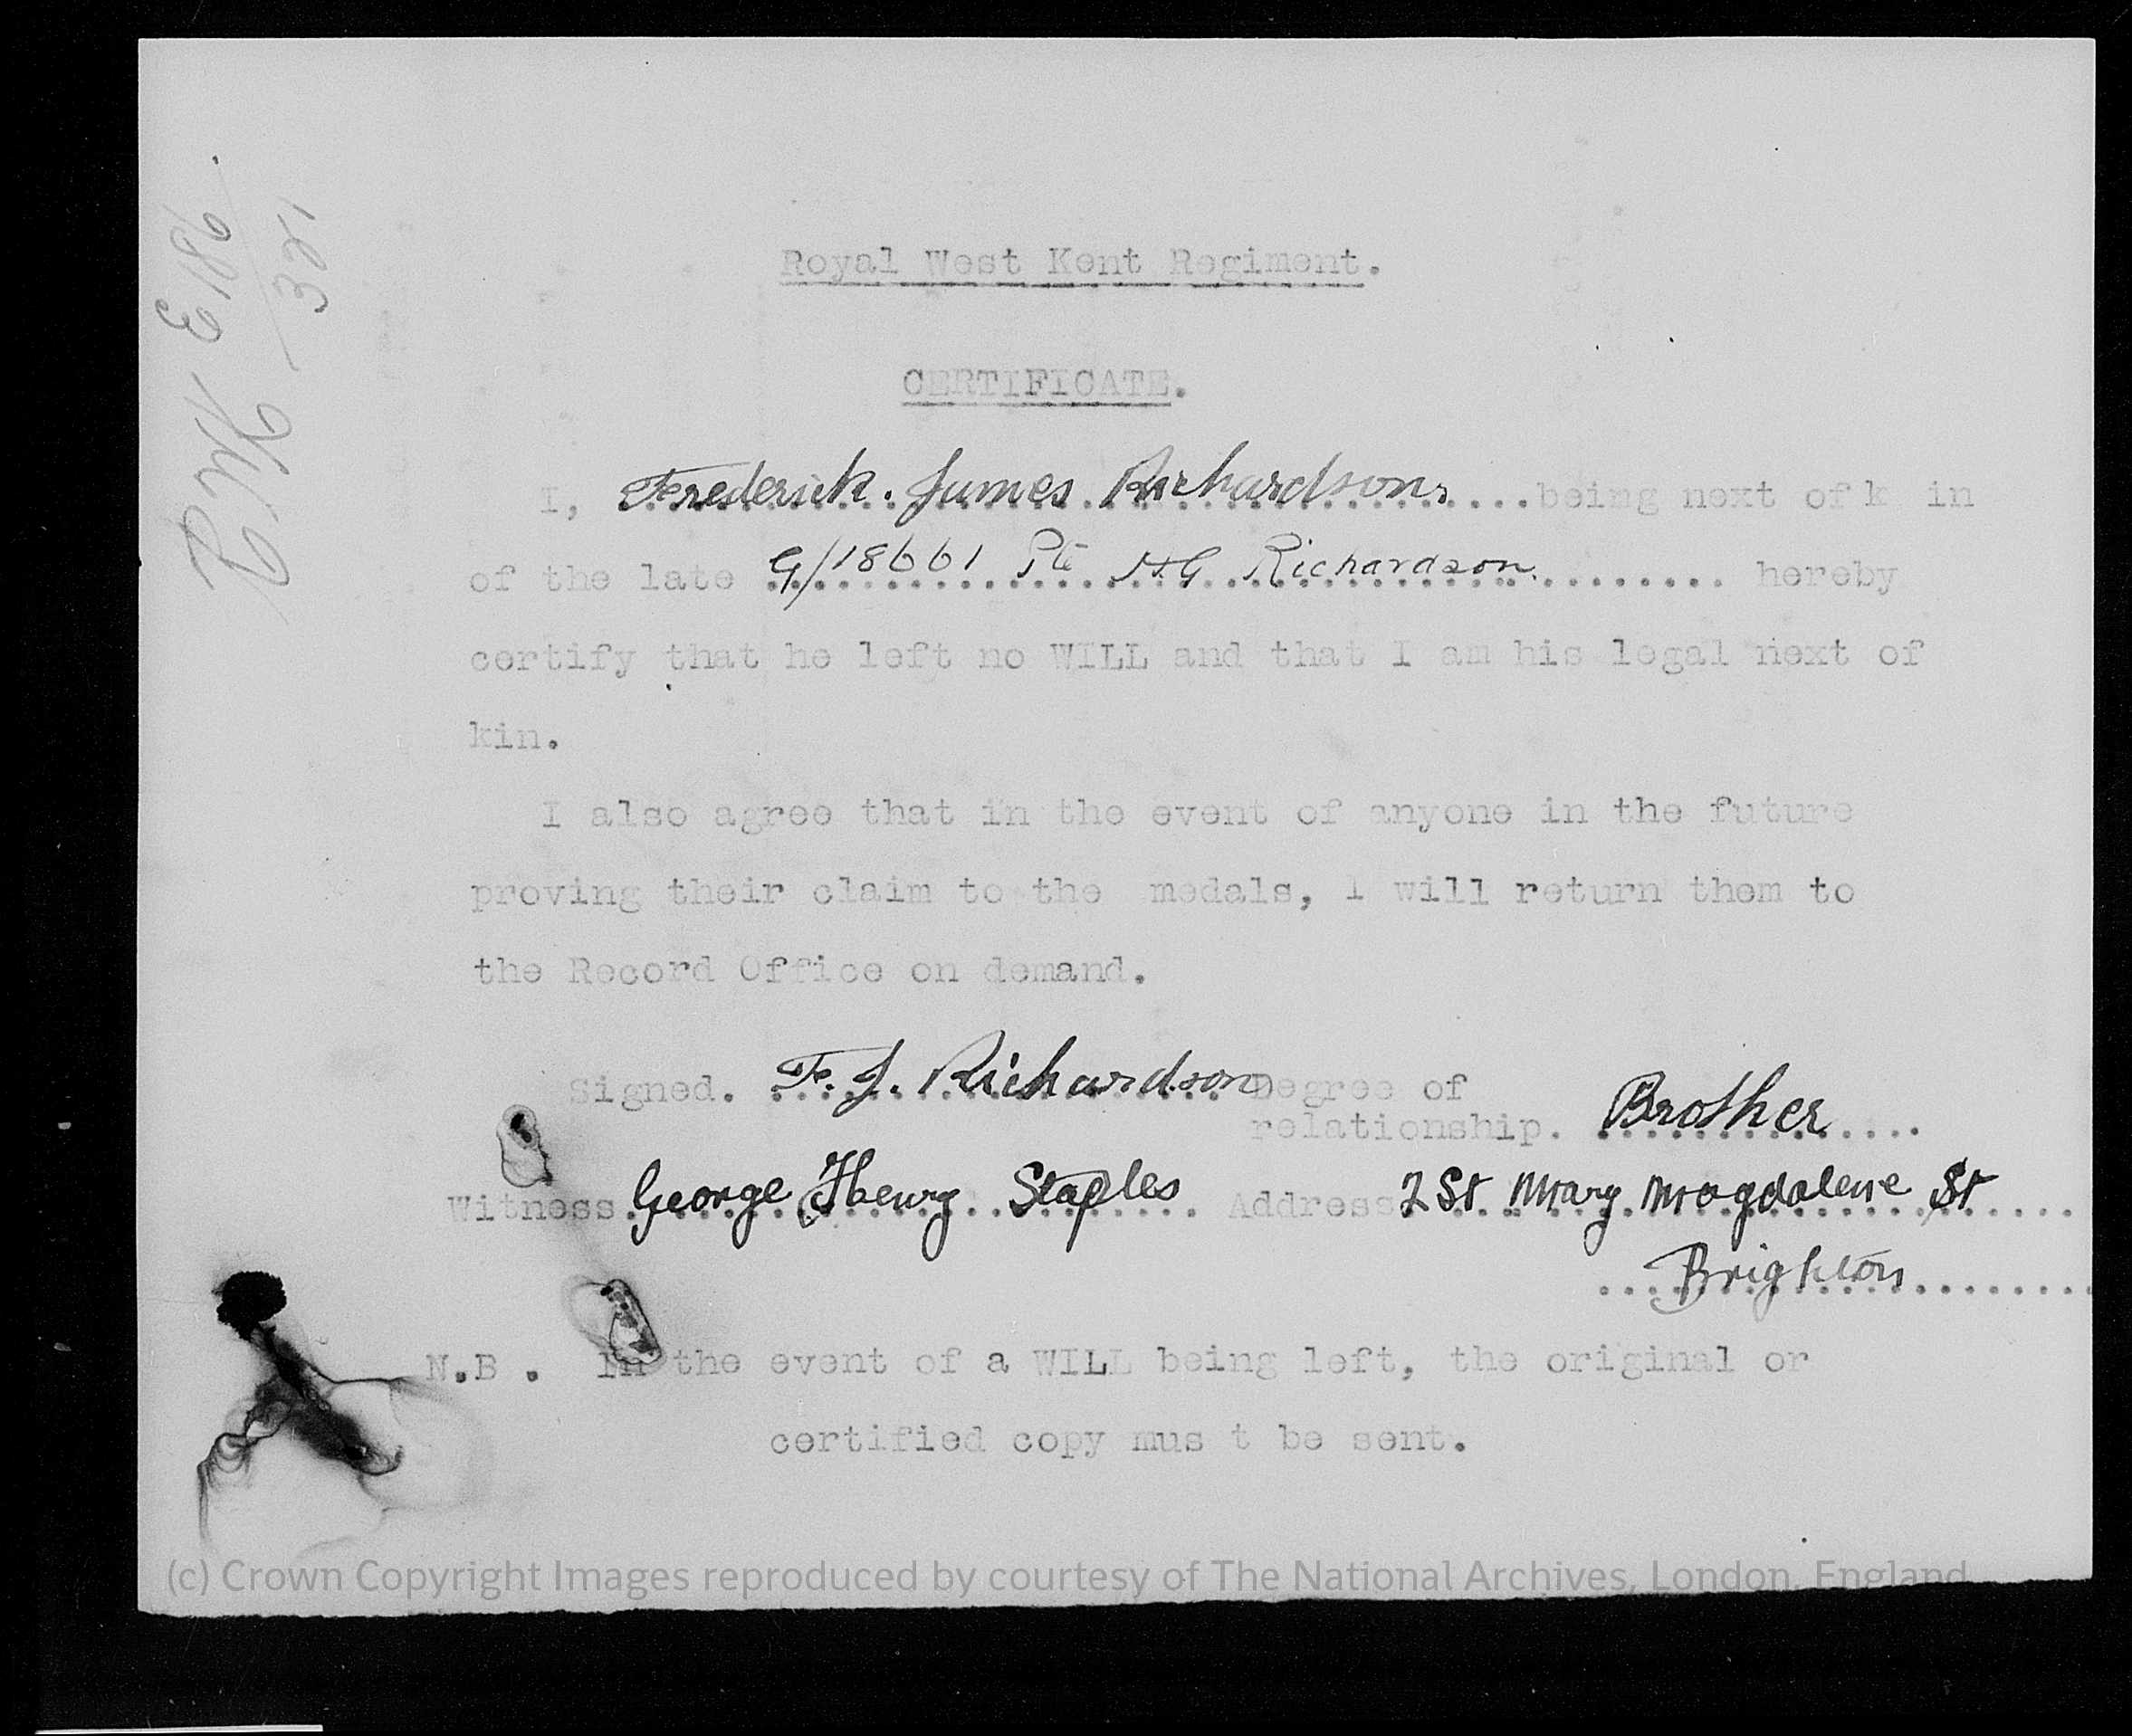 RWK E186
321
Royal West Kent Regiment.
CERTIFICATE.
I, Frederick. James. Richardson. ... being next of k in
of the late G/18661 Pte H G Richardson. ........ hereby
certify that he left no WILL and that I am his legal next of
kin.
I also agree that in the event of anyone in the future
proving their claim to the medals, I will return them to
the Record Office on demand.
Signed. F. J. Richardson Degree of
relationship. Brother ....
Witness. George Henry Staples . Address 2 St Mary Magdalene St .....
... Brighton ........
N.B . In the event of a WILL being left, the original or
certified copy mus t be sent.
(c) Crown Copyright Images reproduced by courtesy of The National Archives, London, England.